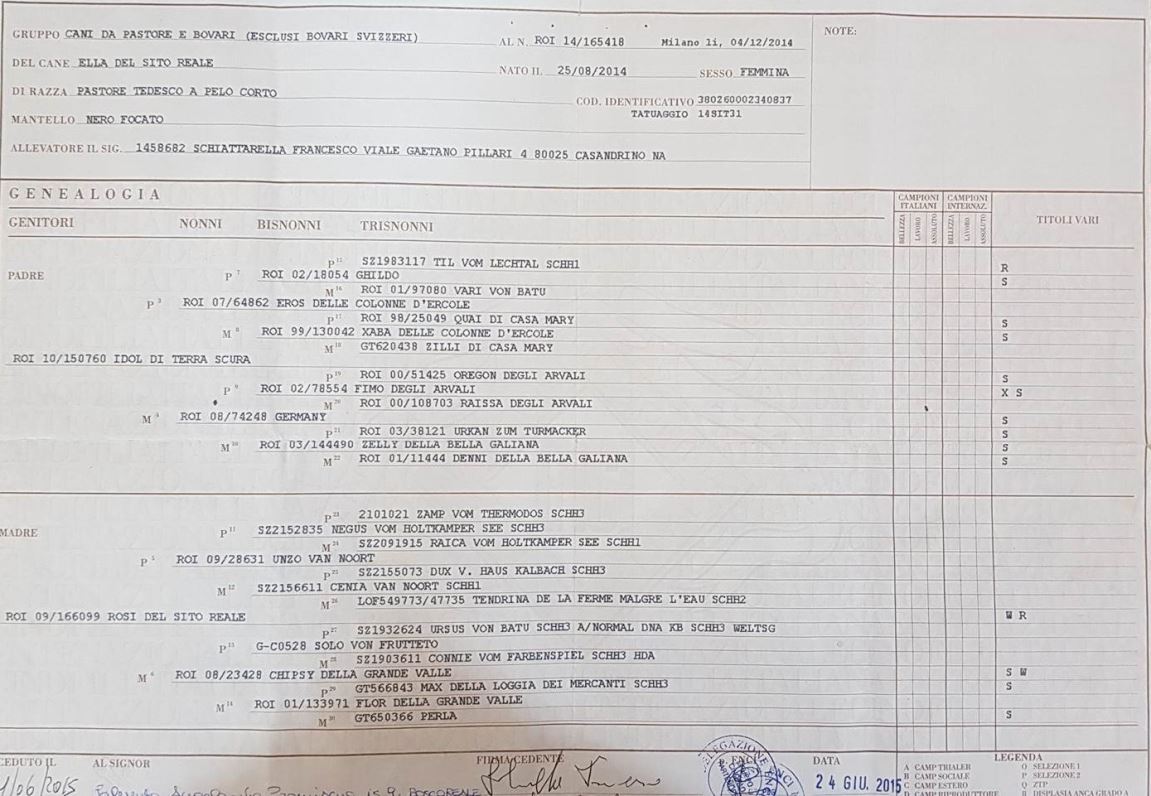 GRUPPO CANI DA PASTORE E BOVARI (ESCLUSI BOVARI SVIZZERI) AL N. ROI 14/165418 Milano li, 04/12/2014 NOTE:
DEL CANE ELLA DEL SITO REALE NATO IL 25/08/2014 SESSO FEMMINA
DI RAZZA PASTORE TEDESCO A PELO CORTO COD. IDENTIFICATIVO 380260002340837
MANTELLO NERO FOCATO TATUAGGIO 14SIT31
ALLEVATORE IL SIG. 1458682 SCHIATTARELLA FRANCESCO VIALE GAETANO PILLARI 4 80025 CASANDRINO NA
GENEALOGIA
CAMPIONI ITALIANI CAMPIONI INTERNAZ.
GENITORI NONNI BISNONNI TRISNONNI BELLEZZA LAVORO ASSOLUTO BELLEZZA LAVORO ASSOLUTO TITOLI VARI
P 15 SZ1983117 TIL VOM LECHTAL SCHH1 R
PADRE P 7 ROI 02/18054 GHILDO S
M 16 ROI 01/97080 VARI VON BATU
P 3 ROI 07/64862 EROS DELLE COLONNE D'ERCOLE
P 17 ROI 98/25049 QUAI DI CASA MARY S
M 8 ROI 99/130042 XABA DELLE COLONNE D'ERCOLE S
M 18 GT620438 ZILLI DI CASA MARY
ROI 10/150760 IDOL DI TERRA SCURA
P 19 ROI 00/51425 OREGON DEGLI ARVALI S
P 9 ROI 02/78554 FIMO DEGLI ARVALI X S
M 20 ROI 00/108703 RAISSA DEGLI ARVALI
M 4 ROI 08/74248 GERMANY S
P 21 ROI 03/38121 URKAN ZUM TURMACKER S
M 10 ROI 03/144490 ZELLY DELLA BELLA GALIANA S
M 22 ROI 01/11444 DENNI DELLA BELLA GALIANA S
P 23 2101021 ZAMP VOM THERMODOS SCHH3
MADRE P 11 SZ2152835 NEGUS VOM HOLTKAMPER SEE SCHH3
M 24 SZ2091915 RAICA VOM HOLTKAMPER SEE SCHH1
P 5 ROI 09/28631 UNZO VAN NOORT
P 25 SZ2155073 DUX V. HAUS KALBACH SCHH3
M 12 SZ2156611 CENIA VAN NOORT SCHH1
M 26 LOF549773/47735 TENDRINA DE LA FERME MALGRE L'EAU SCHH2
ROI 09/166099 ROSI DEL SITO REALE W R
P 27 SZ1932624 URSUS VON BATU SCHH3 A/NORMAL DNA KB SCHH3 WELTSG
P 13 G-C0528 SOLO VON FRUTTETO
M 28 SZ1903611 CONNIE VOM FARBENSPIEL SCHH3 HDA
M 6 ROI 08/23428 CHIPSY DELLA GRANDE VALLE S W
P 29 GT566843 MAX DELLA LOGGIA DEI MERCANTI SCHH3 S
M 14 ROI 01/133971 FLOR DELLA GRANDE VALLE
M 30 GT650366 PERLA S
CEDUTO IL AL SIGNOR FIRMA CEDENTE DATA LEGENDA
1/06/2015 24 GIU. 2015
A CAMP TRIALER O SELEZIONE 1
B CAMP SOCIALE P SELEZIONE 2
C CAMP ESTERO Q ZTP
D CAMP RIPRODUTTORE R DISPLASIA ANCA GRADO A